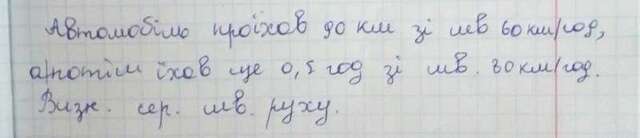 Автомобіль проїхав 90 км зі шв 60 км/год,
а потім їхав ще 0,5 год зі шв. 30 км/год.
Визн. сер. шв. руху.